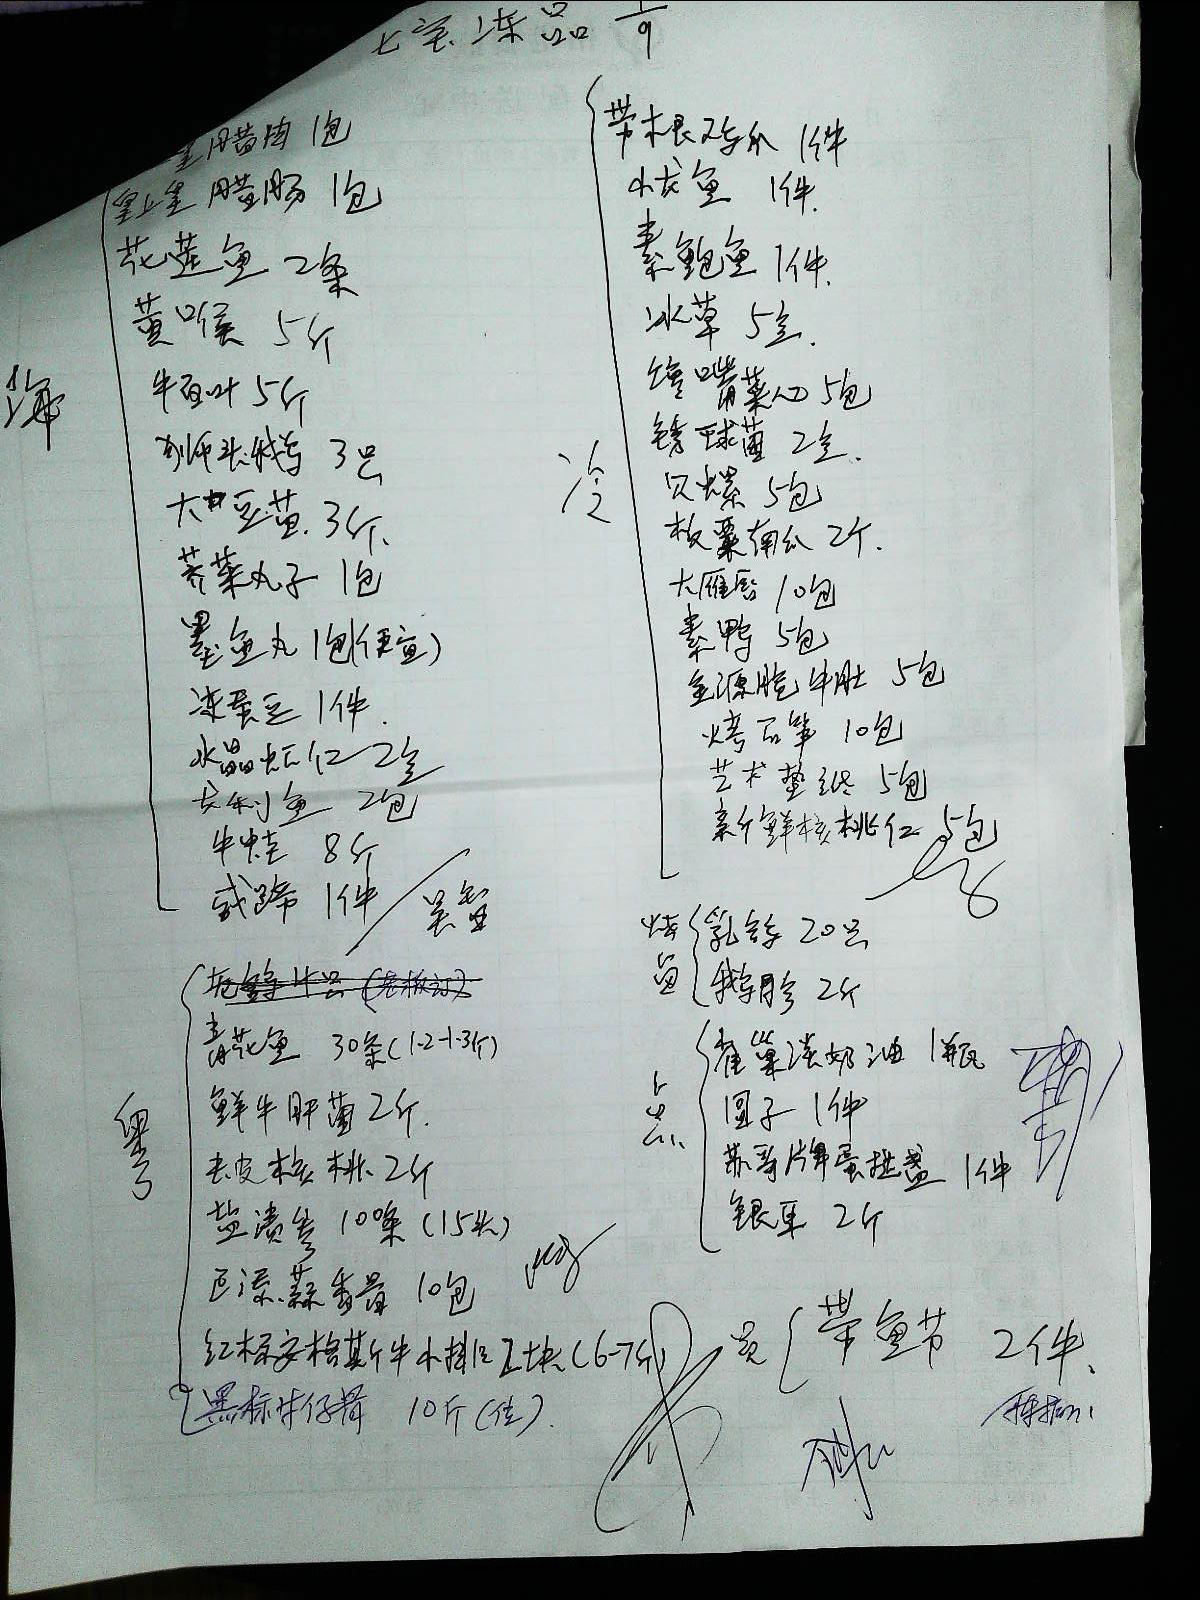 七宝冻品 1/9
海
皇腊肉 1包
皇上皇腊肠 1包
花莲鱼 2条
黄喉 5斤
牛百叶 5斤
狮头鹅 3只
大黄 3斤
荠菜丸子 1包
墨鱼丸 1包(便宜)
冻蚕豆 1件
水晶虾仁 2盒
长利鱼 2包
牛蛙 8斤
1件
粤
青花鱼 30条(1.2-1.3斤)
鲜牛肝菌 2斤
去皮核桃 2斤
盐渍参 100条(15头)
蒜香骨 10包
红标安格斯牛小排 块(6-7斤)
黑标牛仔骨 10斤(位)
冷
带根 1件
小龙鱼 1件
素鲍鱼 1件
冰草 5盒
嘴菜心 5包
绣球菌 2盒
螺 5包
板栗南瓜 2个
10包
素鸭 5包
牛肚 5包
烤石笋 10包
艺术垫纸 5包
新鲜核桃仁 5包
乳鸽 20只
鹅胗 2斤
上点
雀巢淡奶油 1瓶
圆子 1件
苏哥牌蛋挞盏 1件
银耳 2斤
员
带鱼节 2件